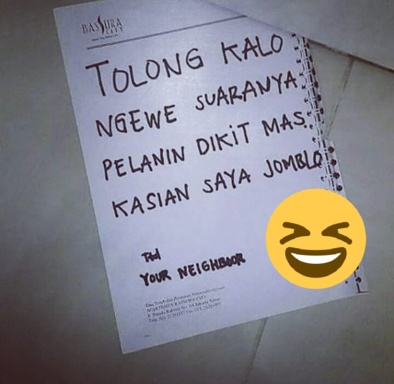 BASSURA
CITY
TOLONG KALO
NGEWE SUARANYA
PELANIN DIKIT MAS.
KASIAN SAYA JOMBLO
YOUR NEIGHBOOR